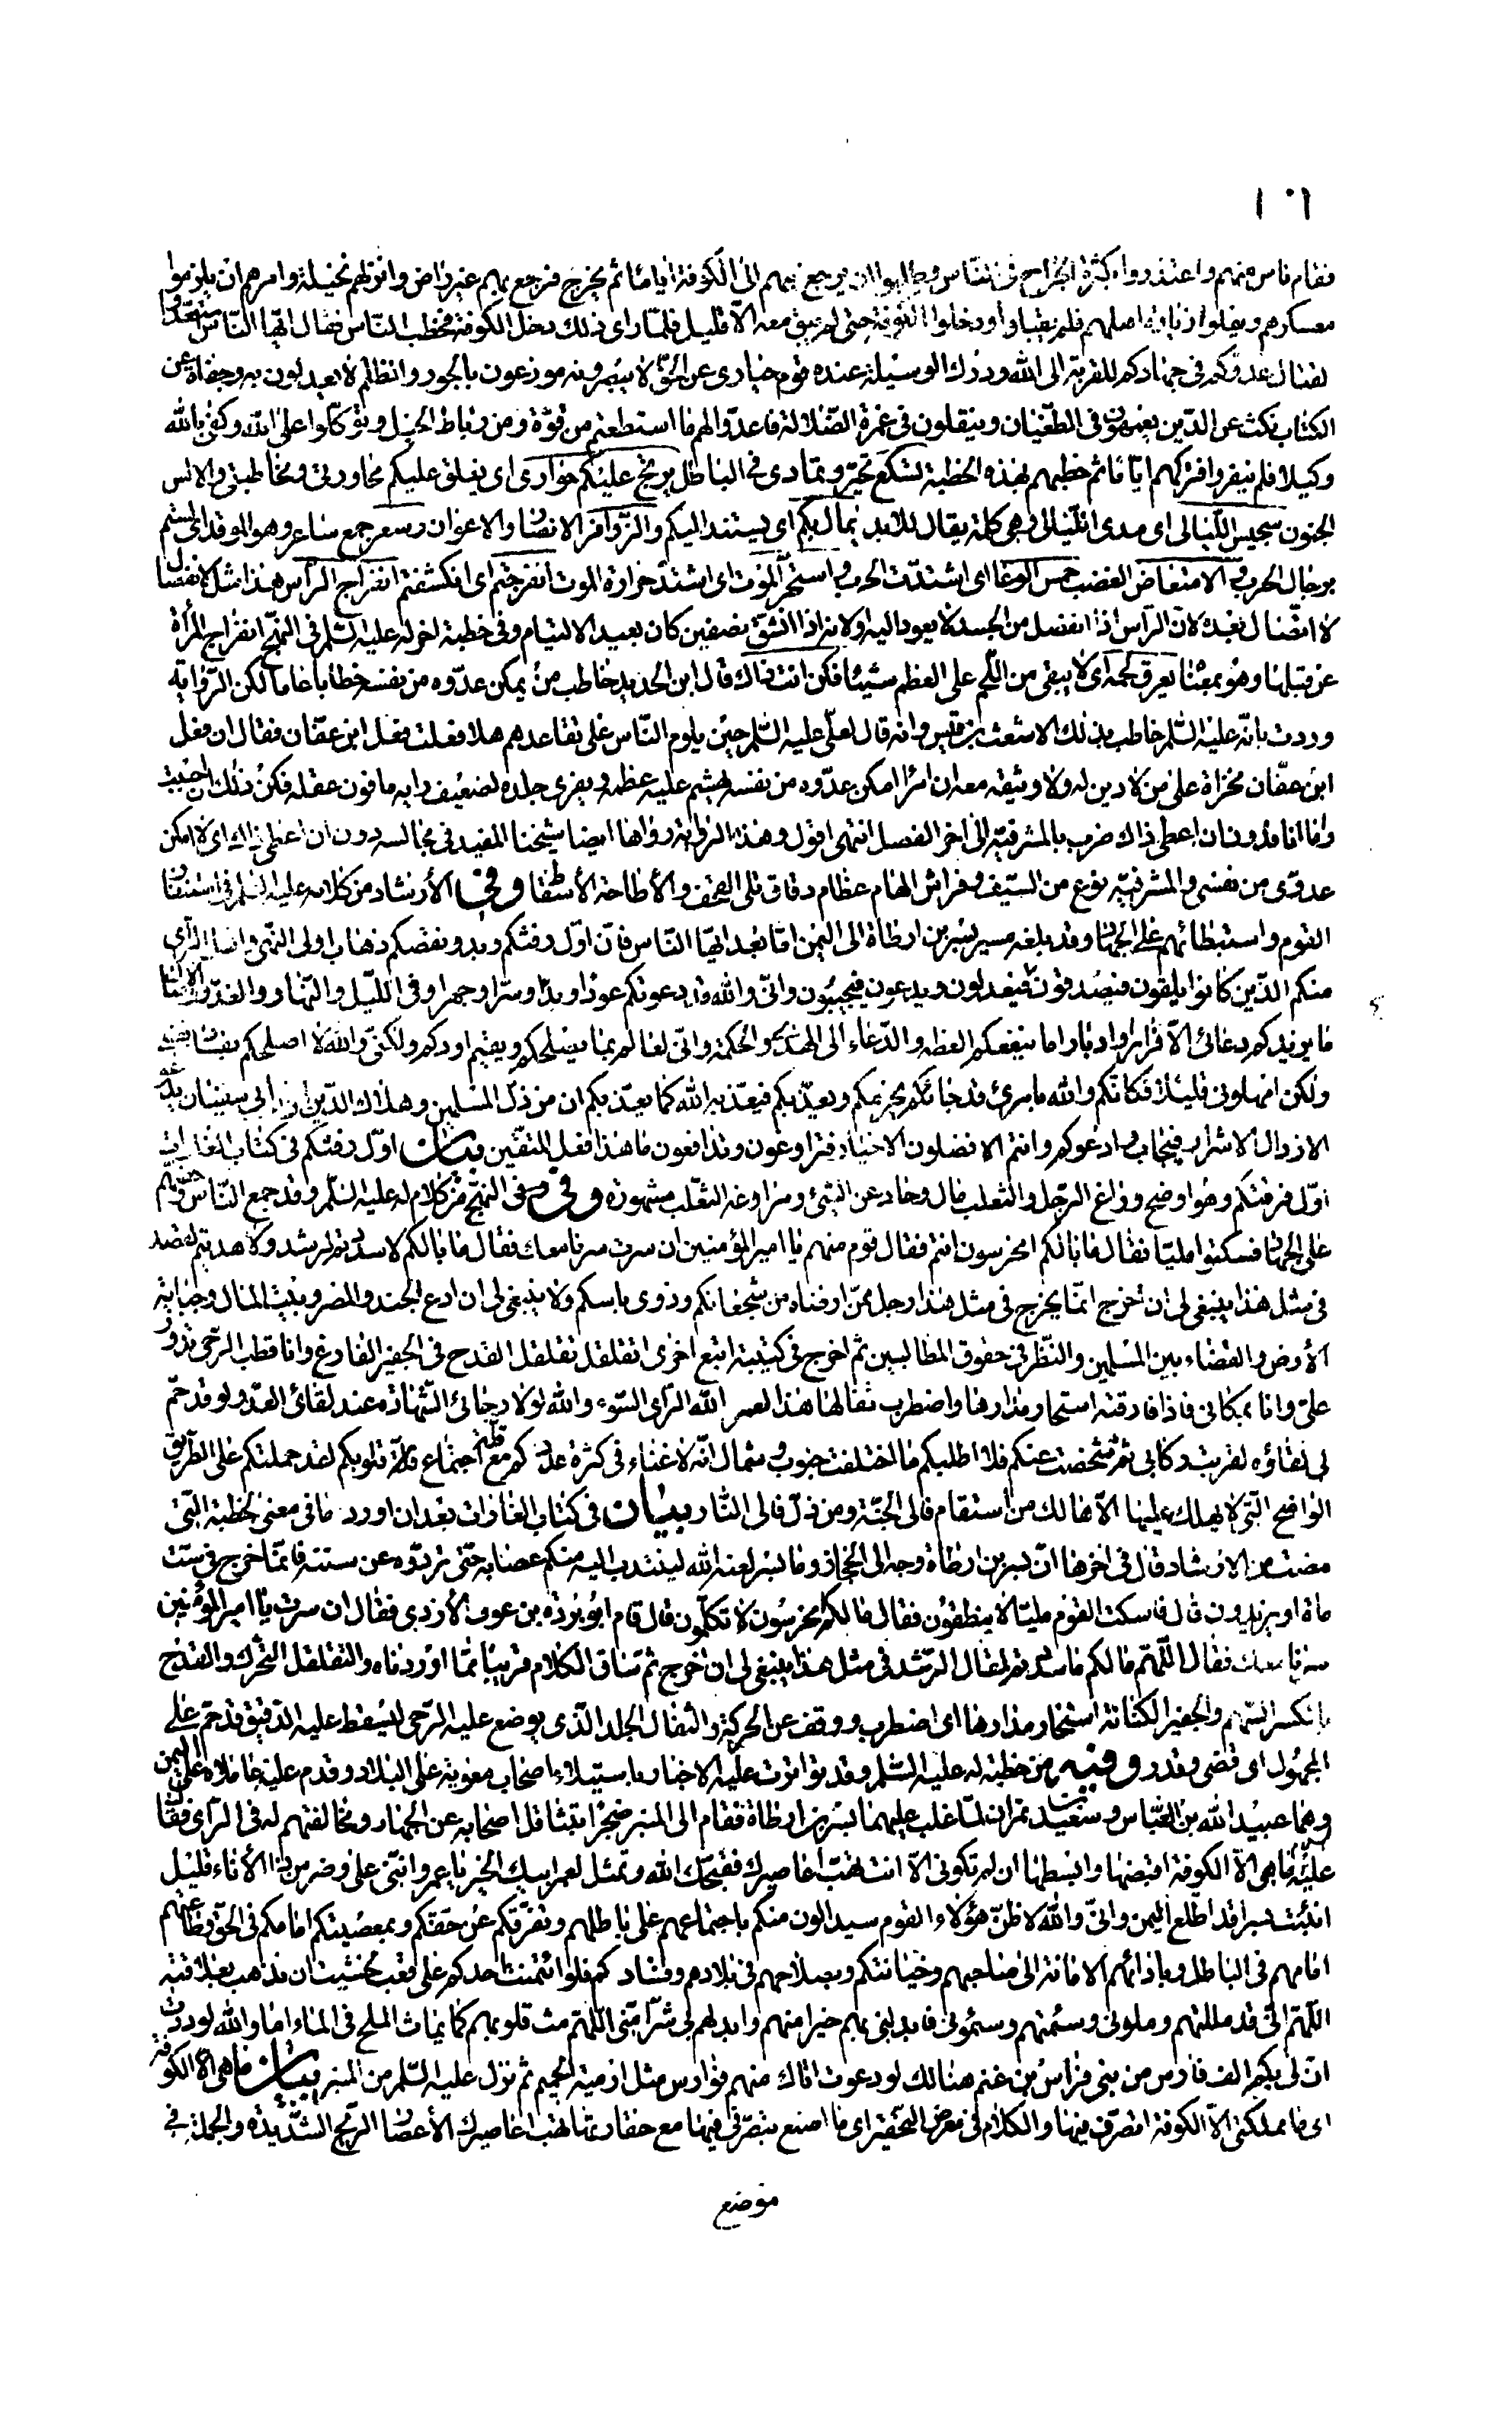 ١٠٦
فقام ناس منهم واعتذروا بكثرة الجراح في الناس وطلبوا ان يرجع بهم الى الكوفة اياما ثم يخرج فرجع بهم غير راض وانزلهم نخيلة وامرهم ان يلزموا
معسكرهم ويقلوا زيارة اهلهم فلم يقبلوا ودخلوا الكوفة حتى لم يبق معه الا قليل فلما راى ذلك دخل الكوفة فخطب الناس فقال ايها الناس استعدوا
لقتال عدوكم في جهادكم القربة الى الله ودرك الوسيلة عنده قوم حيارى عن الحق لا يبصرونه موزعون بالجور والظلم لا يعدلون به وجفاة عن
الكتاب نكث عن الدين يعمهون في الطغيان ويتقلون في غمرة الضلالة فاعدوا لهم ما استطعتم من قوة ومن رباط الخيل وتوكلوا على الله وكفى بالله
وكيلا فلم ينفروا فتركهم اياما ثم خطبهم بهذه الخطبة لتسكع تحير وتمادى في الباطل يرتج عليكم حوارى اى يغلق عليكم محاورتي ومخاطبتي والالس
الجنون سجيس الليالى اى مدى الليالى وهي كلمة يقال للابد يمال بكم اى يستند اليكم والزوافر الانصار والاعوان وسعر جمع ساعر وهو الموقد اى لبئسم
برجال الحرب والامتعاض الغضب حمس الوغا اى اشتدت الحرب واستحر الموت اى اشتد حرارة الموت انفرجتم اى انكشفتم انفراج الراس هذا مثل لانفصال
لا اتصال بعده لان الراس اذا انفصل من الجسد لا يعود اليه اولانه اذا انشق نصفين كان بعيد الالتيام وفي خطبة اخرى له عليه السلم في النهج انفراج المراة
عن قبلها وهو بمعنا يعرق لحمه اى لا يبقى من اللحم على العظم شيئا فكن انت ذاك قال ابن الحديد خاطب من يمكن عدوه من نفسه خطابا عاما لكن الرواية
وردت بانه عليه السلم خاطب بذلك الاشعث بن قيس وانه قال لعلى عليه السلم حين يلوم الناس على تقاعدهم هلا فعلت فعل ابن عفان فقال ان فعل
ابن عفان مخزاة على من لا دين له ولا وثيقة معه ان امرا امكن عدوه من نفسه يهشم عليه عظمه ويفرى جلده لضعيف رايه مافون عقله فكن ذلك ان احببت
واما انا فدون ان اعطى ذاك ضرب بالمشرفية الى اخر الفصل انتهى اقول وهذه الرواية رواها ايضا شيخنا المفيد في مجالسه دون ان اعطى ذاك اى لا امكن
عدوى من نفسي والمشرفية نوع من السيف وفراش الهام عظام رقاق تلى القحف والاطاحة الاسقاط وفي الارشاد من كلامه عليه السلم في استنفار
القوم واستبطائهم على الجهاد وقد بلغه مسير بسر بن ارطاة الى اليمن اما بعد ايها الناس فان اول رفثكم وبدو نقضكم ذهاب اولى النهى واهل الراى
منكم الذين كانوا يلقون فيصدقون ويقولون فيعدلون ويدعون فيجيبون واني والله قد دعوتكم عودا وبدا وسرا وجهرا وفي الليل والنهار والغدو والاصال
ما يزيدكم دعائى الا فرارا وادبارا اما ينفعكم العظة والدعاء الى الهدى والحكمة واني لعالم بما يصلحكم ويقيم اودكم ولكني والله لا اصلحكم بفساد نفسي
ولكن امهلوني قليلا فكانكم والله بامرئ قد جائكم يحرمكم ويعذبكم فيعذبه الله كما يعذبكم ان من ذل المسلمين وهلاك الدين ان ابن ابي سفيان يدعو
الارذال الاشرار فيجاب وادعوكم وانتم الافضلون الاخيار فتراوغون وتدافعون ما هذا فعل المتقين بيان اول رفثكم في كتاب الغارات
اول فرقتكم وهو اوضح وراغ الرجل والثعلب مال وحاد عن الشئ ومراوغة الثعلب مشهورة وفي النهج من كلام له عليه السلم وقد جمع الناس وحضهم
على الجهاد فسكتوا مليا فقال ما بالكم امخرسون انتم فقال قوم منهم يا امير المؤمنين ان سرت سرنا معك فقال ما بالكم لا سددتم لرشد ولا هديتم لقصد
في مثل هذا ينبغى لى ان اخرج انما يخرج في مثل هذا رجل ممن ارضاه من شجعانكم وذوى باسكم ولا ينبغى لى ان ادع الجند والمصر وبيت المال وجباية
الارض والقضاء بين المسلمين والنظر في حقوق المطالبين ثم اخرج في كتيبة اتبع اخرى اتقلقل تقلقل القدح في الجفير الفارغ وانا قطب الرحى تدور
على وانا بمكاني فاذا فارقته استحار مدارها واضطرب ثفالها هذا لعمر الله الراى السوء والله لولا رجائى الشهادة عند لقائى العدو لو قد حم
لى لقاؤه لقربت ركابي ثم شخصت عنكم فلا اطلبكم ما اختلفت جنوب وشمال انه لا غناء في كثرة عددكم مع قلة اجتماع قلوبكم لقد حملتكم على الطريق
الواضح التي لا يهلك عليها الا هالك من استقام فالى الجنة ومن زل فالى النار بيان في كتاب الغارات بعد ان اورد ما في معنى الخطبة التي
مضت من الارشاد قال في اخرها ان بسر بن ارطاة وجه الى الحجاز وما بسر لعنه الله لينتدب اليه منكم عصابة حتى تردوه عن سننه فانما خرج في ست
ماة او يزيدون قال فاسكت القوم مليا لا ينطقون فقال ما لكم مخرسون لا تكلمون قال قام ابو بردة بن عوف الازدى فقال ان سرت يا امير المؤمنين
سرنا معك فقال اللهم ما لكم ما سددتم لمقال الرشد في مثل هذا ينبغى لى ان اخرج ثم ساق الكلام قريبا مما اوردناه والتقلقل التحرك والقدح
بالكسر السهم والجفير الكنانة استحار مدارها اى اضطرب ووقف عن الحركة والثفال الجلد الذى يوضع عليه الرحى ليسقط عليه الدقيق قد حم على
المجهول اى قضى وقدر وفيه من خطبة له عليه السلم وقد تواترت عليه الاخبار باستيلاء اصحاب معوية على البلاد وقدم عليه عاملاه على اليمن
وهما عبيد الله بن العباس وسعيد بن نمران لما غلب عليهما بسر بن ارطاة فقام الى المنبر ضجرا بتثاقل اصحابه عن الجهاد ومخالفتهم له في الراى فقال
عليه السلم ما هي الا الكوفة اقبضها وابسطها ان لم تكوني الا انت تهب اعاصيرك فقبحك الله وتمثل لعمر ابيك الخير يا عمرو انني على وضر من ذا الاناء قليل
انبئت بسرا قد اطلع اليمن واني والله لاظن هؤلاء القوم سيدالون منكم باجتماعهم على باطلهم وتفرقكم عن حقكم وبمعصيتكم امامكم في الحق وطاعتهم
امامهم في الباطل وبادائهم الامانة الى صاحبهم وخيانتكم وبصلاحهم في بلادهم وفسادكم فلو ائتمنت احدكم على قعب لخشيت ان يذهب بعلاقته
اللهم اني قد مللتهم وملوني وسئمتهم وسئموني فابدلني بهم خيرا منهم وابدلهم بي شرا مني اللهم مث قلوبهم كما يماث الملح في الماء اما والله لوددت
ان لى بكم الف فارس من بني فراس بن غنم هنالك لو دعوت اتاك منهم فوارس مثل ارمية الحميم ثم نزل عليه السلم من المنبر بيان ما هي الا الكوفة
اى ما مملكتي الا الكوفة اتصرف فيها والكلام في معرض التحقير اى ما اصنع بتصرفي فيها مع حقارتها تهب اعاصيرك الاعصار الريح الشديدة والجملة في
موضع